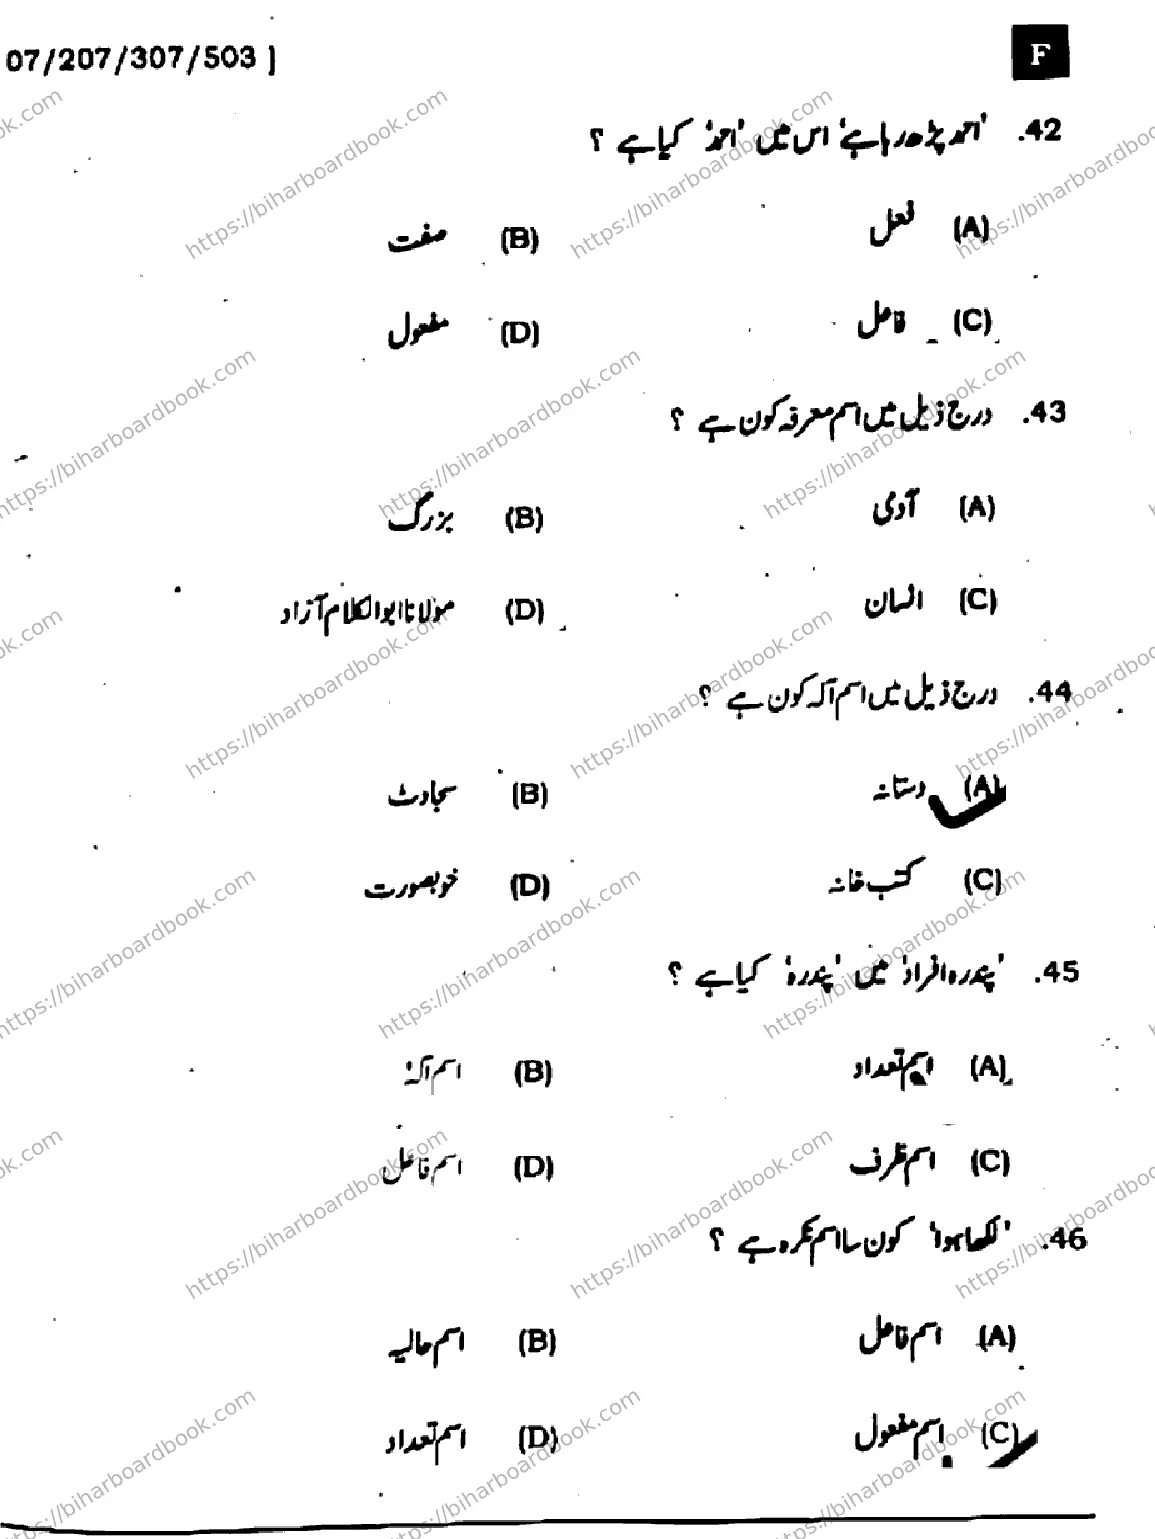 07/207/307/503 ]
F
42. 'احمد پڑھ رہا ہے' اس میں 'احمد' کیا ہے ؟
(A) فعل (B) صفت
(C) فاعل (D) مفعول
43. درج ذیل میں اسم معرفہ کون ہے ؟
(A) آدمی (B) بزرگ
(C) انسان (D) مولانا ابوالکلام آزاد
44. درج ذیل میں اسم آلہ کون ہے ؟
(A) دستانہ (B) سجاوٹ
(C) کتب خانہ (D) خوبصورت
45. 'پندرہ افراد' میں 'پندرہ' کیا ہے ؟
(A) اسم تعداد (B) اسم آلہ
(C) اسم ظرف (D) اسم فاعل
46. 'لکھا ہوا' کون سا اسم نکرہ ہے ؟
(A) اسم فاعل (B) اسم حالیہ
(C) اسم مفعول (D) اسم تعداد
https://biharboardbook.com